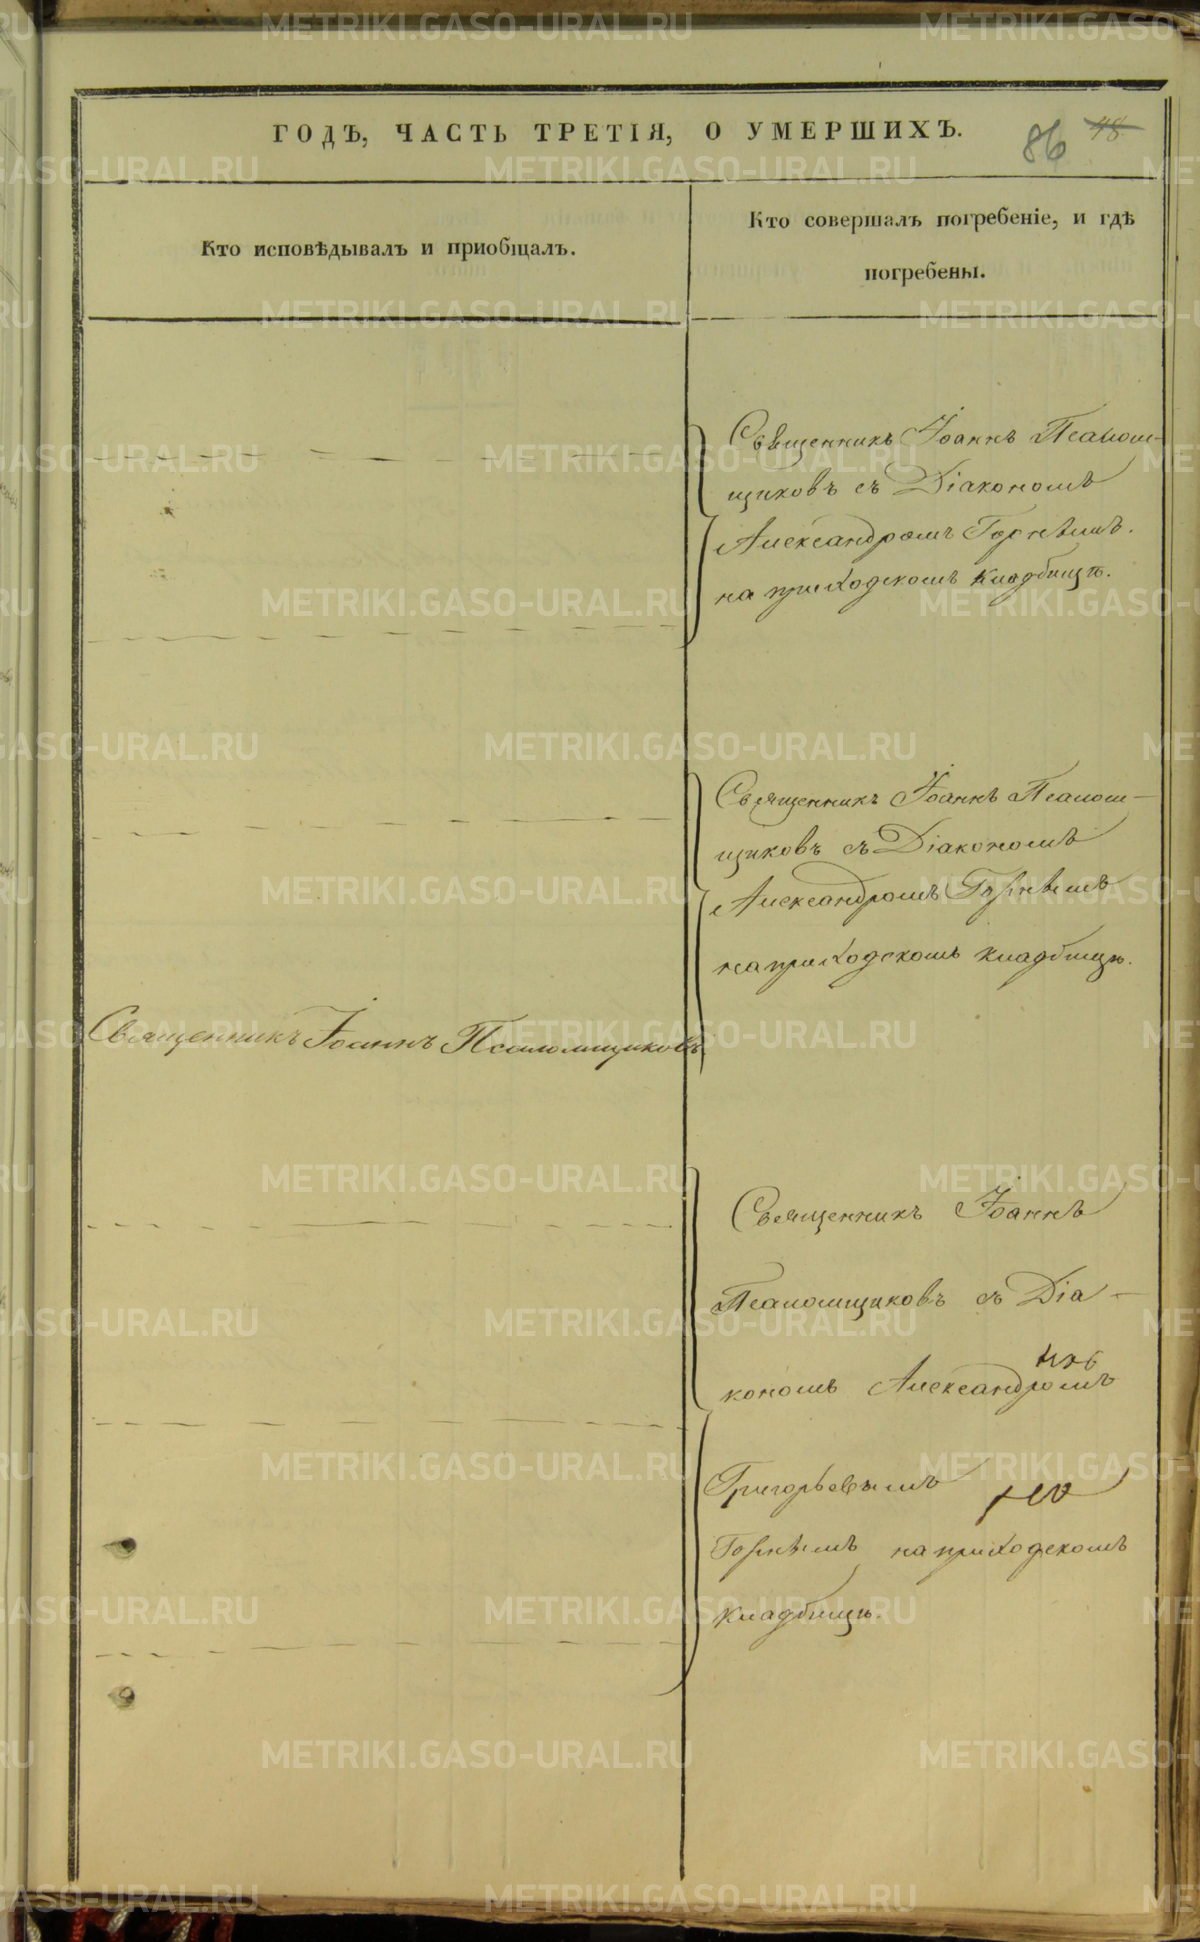 ГОДЪ, ЧАСТЬ ТРЕТІЯ, О УМЕРШИХЪ.
86 48
Кто исповѣдывалъ и пріобщалъ.
Кто совершалъ погребеніе, и гдѣ
погребены.
Священникъ Іоаннъ Псалом-
щиковъ съ Діакономъ
Александромъ Горнымъ.
на приходскомъ кладбищѣ.
Священникъ Іоаннъ Псалом-
щиковъ съ Діакономъ
Александромъ Горнымъ
на приходскомъ кладбищѣ.
Священникъ Іоаннъ Псаломщиковъ
Священникъ Іоаннъ
Псаломщиковъ съ Діа-
кономъ Александромъ
Григорьевымъ
Горнымъ на приходскомъ
кладбищѣ.
METRIKI.GASO-URAL.RU